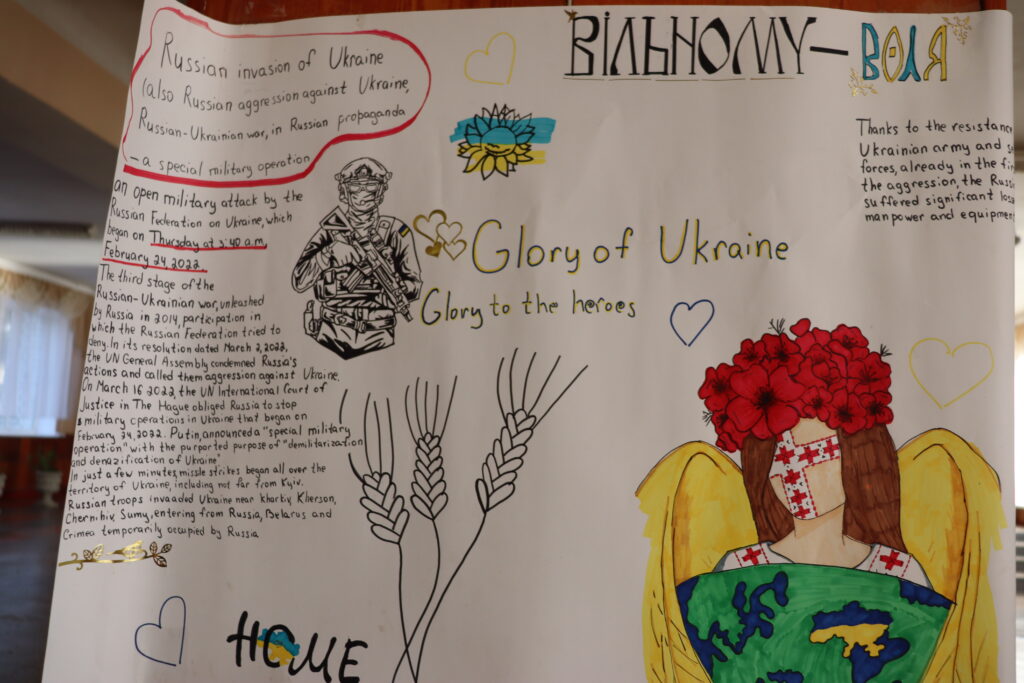 Russian invasion of Ukraine
(also Russian aggression against Ukraine,
Russian-Ukrainian war, in Russian propaganda
– a special military operation
an open military attack by the
Russian Federation on Ukraine, which
began on Thursday at 3:40 a.m,
February 24, 2022.
The third stage of the
Russian-Ukrainian war, unleashed
by Russia in 2014, participation in
which the Russian Federation tried to
deny. In its resolution dated March 2, 2022,
the UN General Assembly condemned Russia's
actions and called them aggression against Ukraine.
On March 16 2022, the UN International Court of
Justice in The Hague obliged Russia to stop
military operations in Ukraine that began on
February 24, 2022. Putin, announced a "special military
operation" with the purported purpose of "demilitarization
and denazification of Ukraine"
In just a few minutes, missile strikes began all over the
territory of Ukraine, including not far from Kyiv.
Russian troops invaaded Ukraine near Kharkiv, Kherson,
Chernihiv, Sumy, entering from Russia, Belarus and
Crimea temporarily occupied by Russia
ВІЛЬНОМУ – ВОЛЯ
Glory of Ukraine
Glory to the heroes
Thanks to the resistance
Ukrainian army and
forces, already in the
the aggression, the
suffered significant
manpower and equipment
HOME